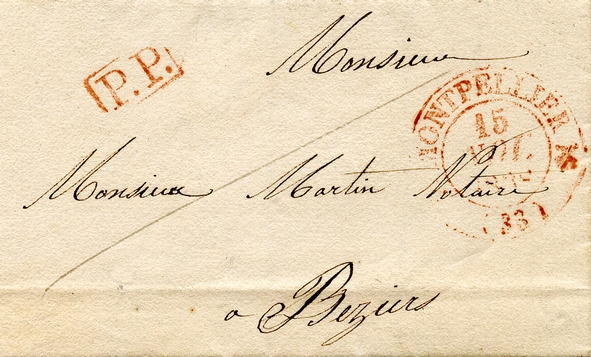 P.P.
Monsieur
MONTPELLIER
15
(33)
Monsieur Martin Notaire
a Beziers